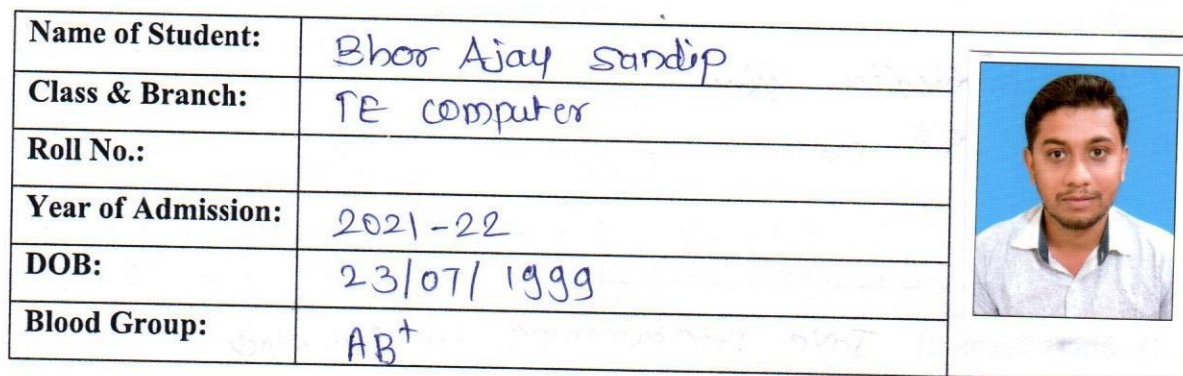 Name of Student: Bhor Ajay Sandip
Class & Branch: TE computer
Roll No.:
Year of Admission: 2021-22
DOB: 23/07/1999
Blood Group: AB+